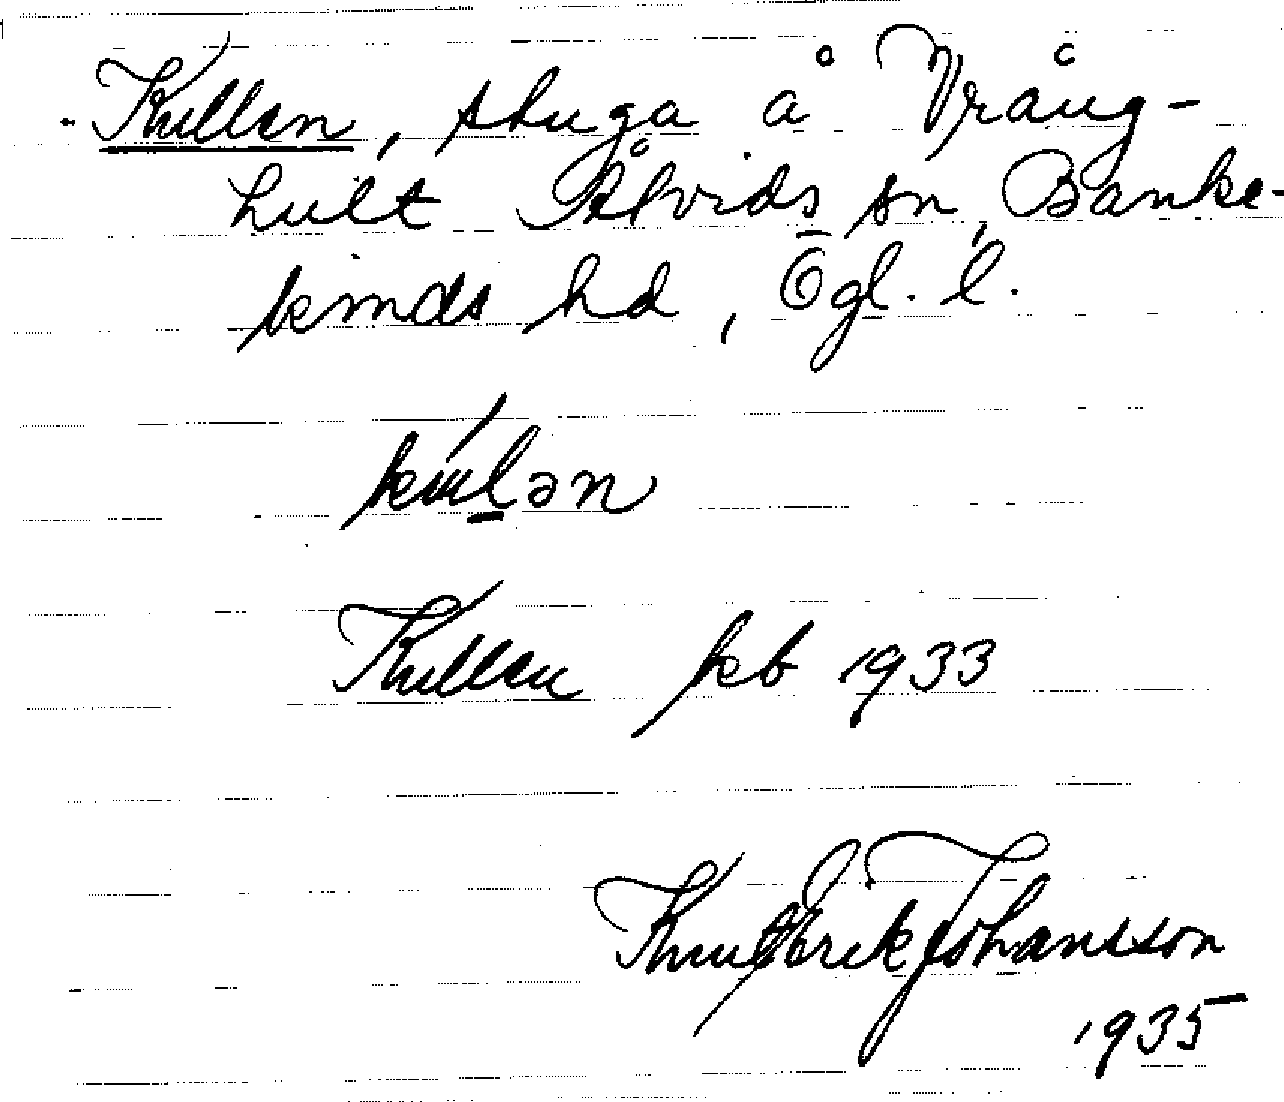 Kullen, stuga å Vrång-
hult Åtvids sn, Banke-
kinds hd, Ögl. l.
kulən
Kullen kb 1933
Knut Erik Johansson
1935